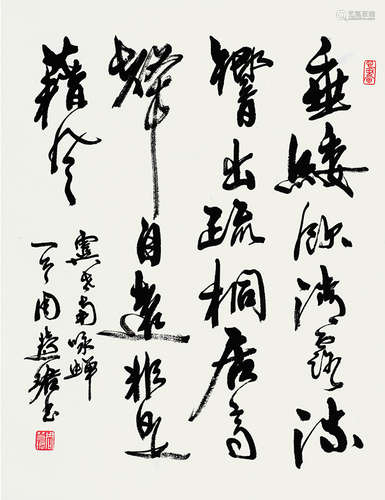 垂緌飲清露流
響出疏桐居高
聲自遠非是
藉秋風
虞世南咏蝉
周慧珺书